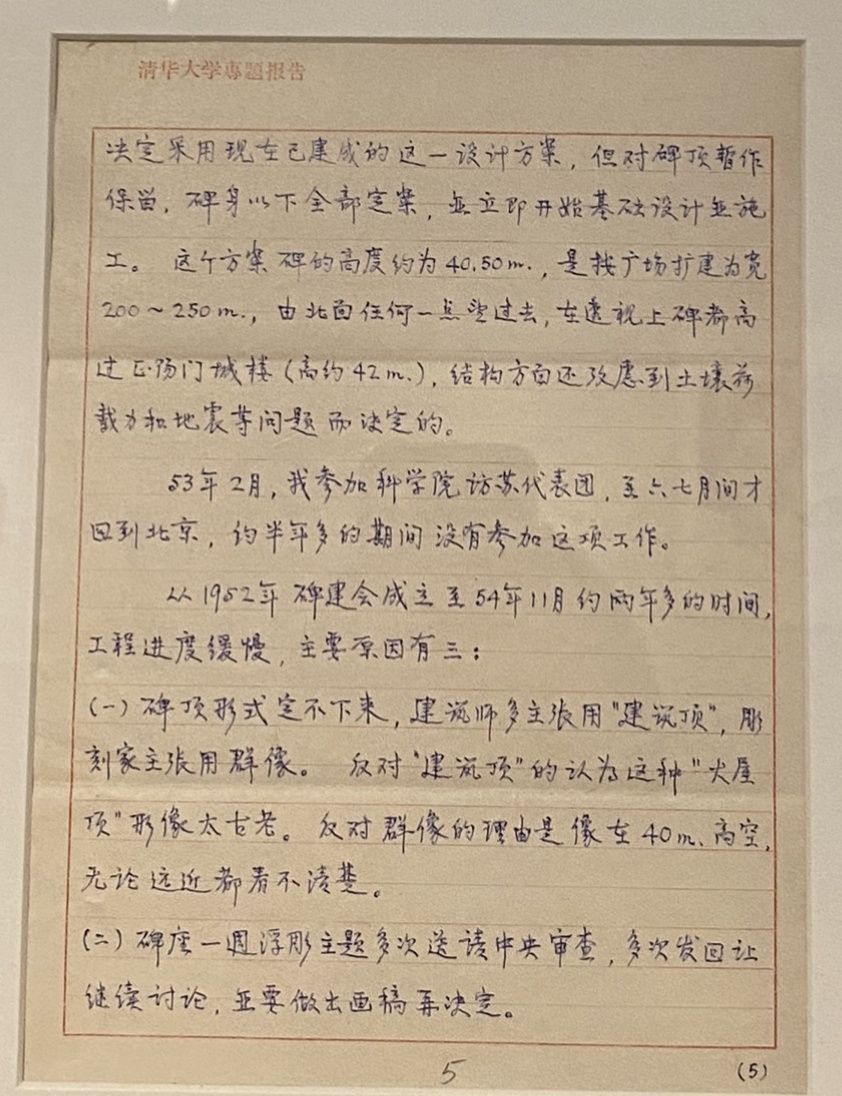 清华大学专題报告
决定采用现在已建成的这一设计方案，但对碑顶暂作
保畄，碑身以下全部定案，並立即开始基础设计並施
工。 这个方案碑的高度约为40.50m.，是按广场扩建为宽
200～250m.，由北面任何一点望过去，在透视上碑都高
过正阳门城楼（高约42m.），结构方面还攷虑到土壤荷
载力和地震等问题而决定的。
53年2月，我参加科学院访苏代表团，至六七月间才
回到北京，约半年多的期间没有参加这项工作。
从1952年碑建会成立至54年11月约两年多的时间，
工程进度缓慢，主要原因有三：
(一)碑顶形式定不下来，建筑师多主张用"建筑顶"，彫
刻家主张用群像。 反对"建筑顶"的认为这种"大屋
顶"形像太古老。反对群像的理由是像在40m.高空，
无论远近都看不清楚。
(二)碑座一週浮彫主题多次送请中央审查，多次发回让
继续讨论，並要做出画稿再决定。
5
(5)